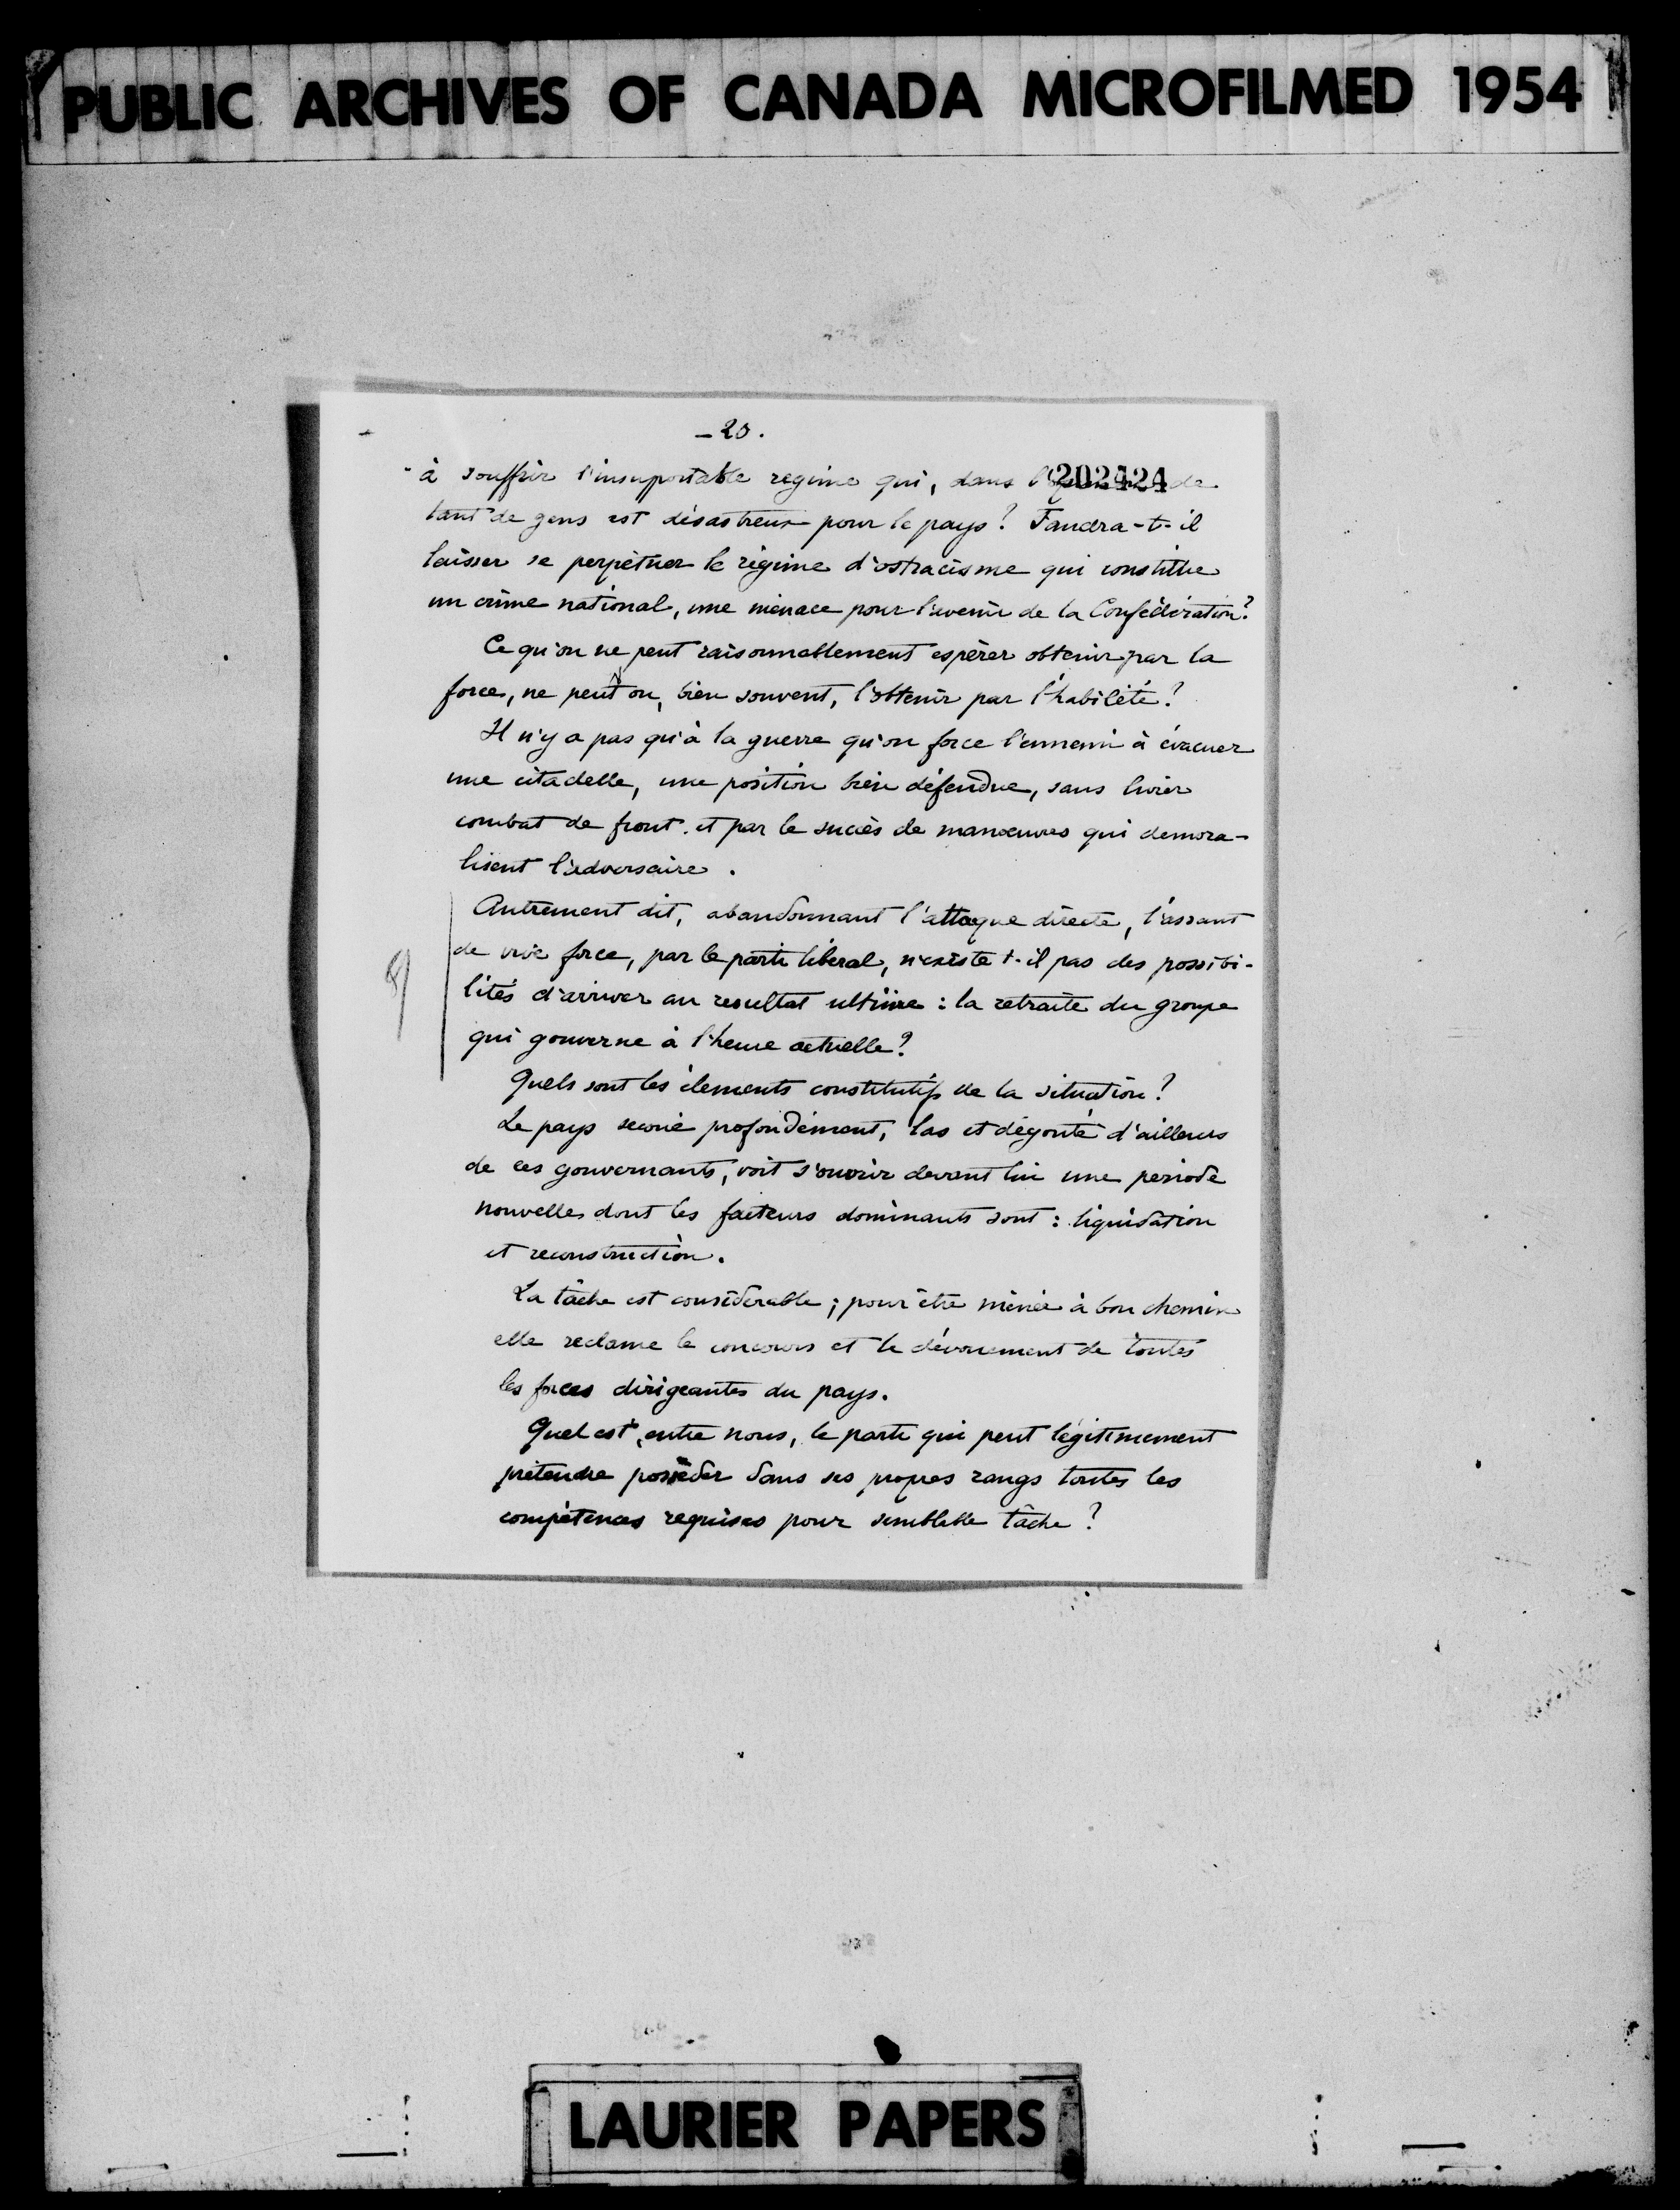 PUBLIC ARCHIVES OF CANADA MICROFILMED 1954
- 20.
à souffrir l'insuportable regime qui, dans 202424 de
tant de gens est désastreux pour le pays? Faudra-t-il
laisser se perpétuer le régime d'ostracisme qui constitue
un crime national, une menace pour l'avenir de la Confédération?
Ce qu'on ne peut raisonnablement espérer obtenir par la
force, ne peut on, bien souvent, l'obtenir par l'habilité?
Il n'y a pas qu'à la guerre qu'on force l'ennemi à évacuer
une citadelle, une position bien défendue, sans livrer
combat de front et par le succès de manœuvres qui demora-
lisent l'adversaire.
Autrement dit, abandonnant l'attaque directe, l'assaut
de vive force, par le parti libéral, n'existe t-il pas des possibi-
lités d'arriver au resultat ultime : la retraite du groupe
qui gouverne à l'heure actuelle?
Quels sont les élements constitutifs de la situation?
Le pays secoué profondément, las et dégouté d'ailleurs
de ces gouvernants, voit s'ouvrir devant lui une période
nouvelle dont les facteurs dominants sont : liquidation
et reconstruction.
La tâche est considerable ; pour être menée à bon chemin
elle reclame le concours et le dévouement de toutes
les forces dirigeantes du pays.
Quel est, entre nous, le parti qui peut légitimement
prétendre posséder dans ses propres rangs toutes les
compétences requises pour semblable tâche?
LAURIER PAPERS